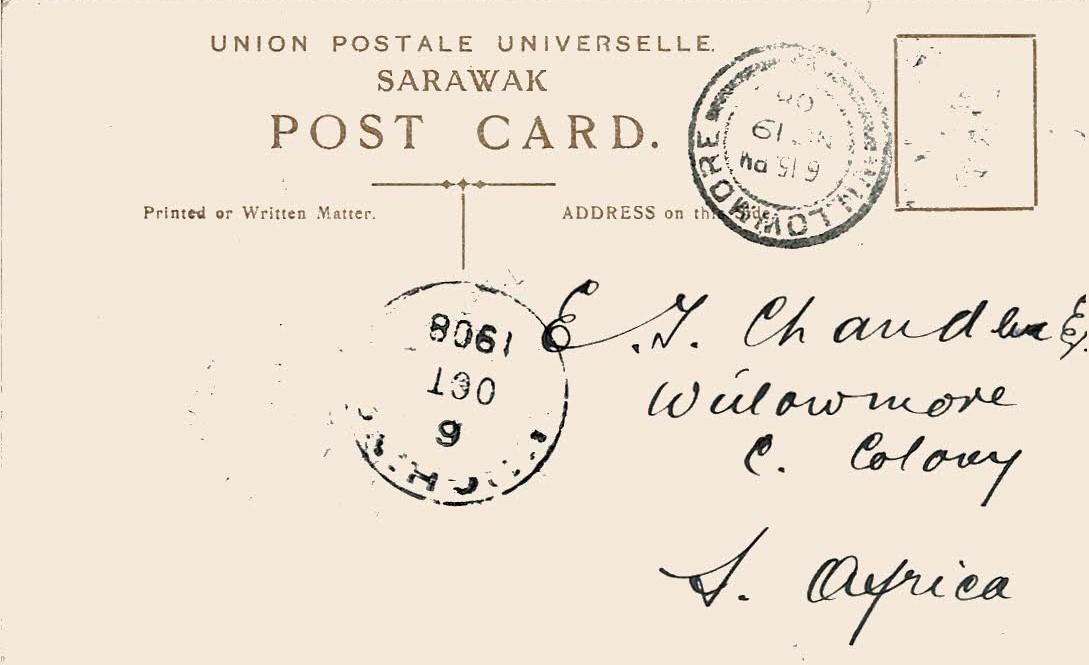 UNION POSTALE UNIVERSELLE.
SARAWAK
POST CARD.
Printed or Written Matter.
ADDRESS on this side.
WILLOWMORE
6 15 PM
NO 19
08
1908
OCT
6
E. T. Chandler
Willowmore
C. Colony
S. Africa